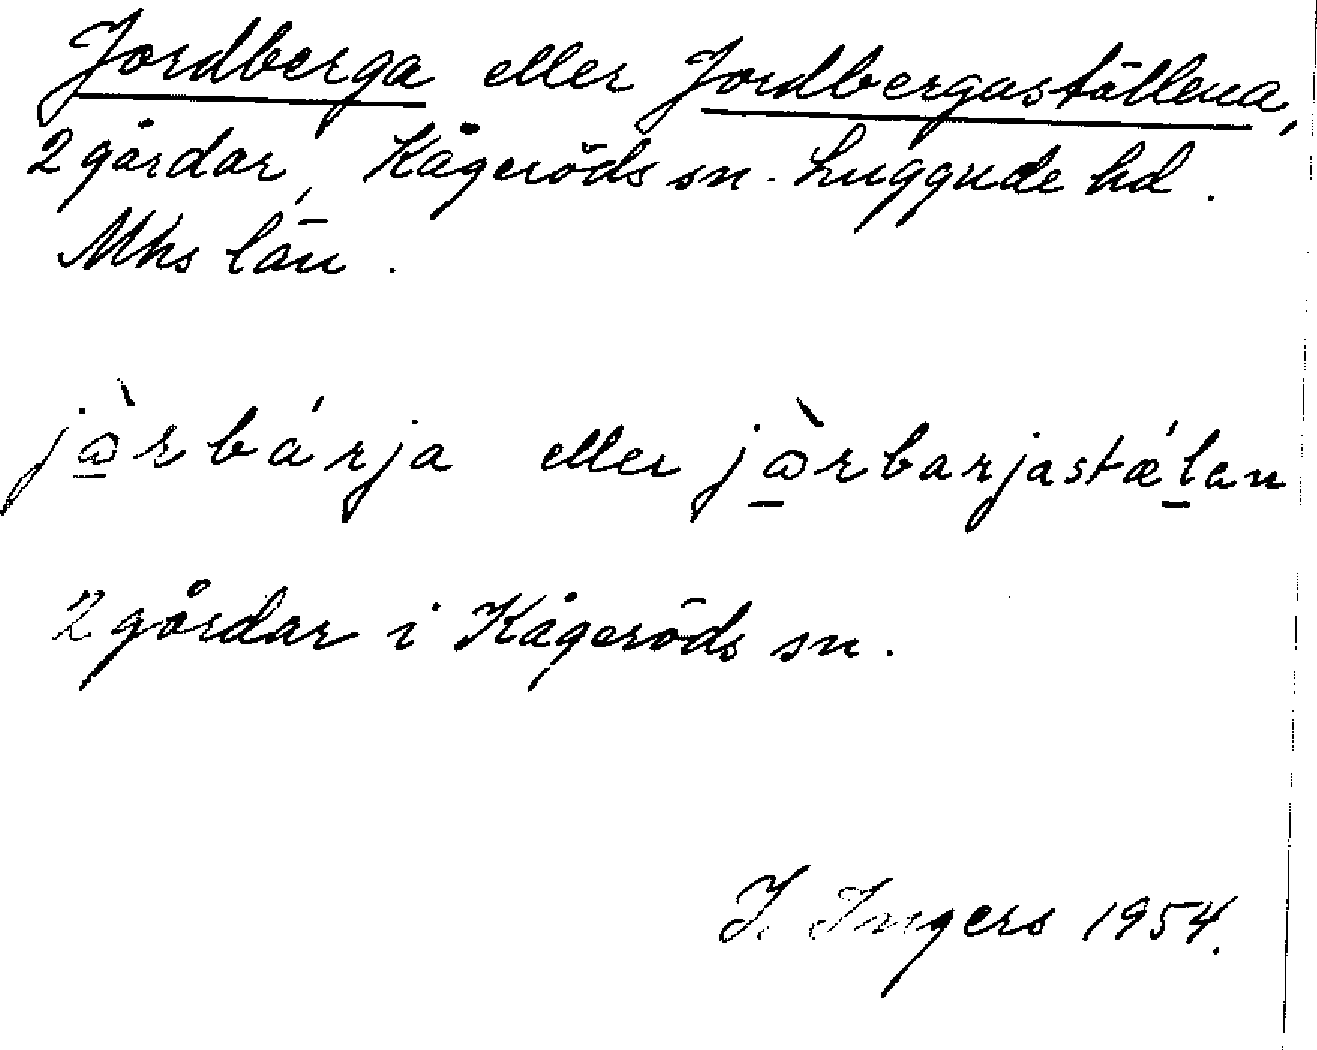 Jordberga eller Jordbergaställena,
2 gårdar, Kågeröds sn. Luggude hd.
Mhs län.
jὼ̲rbárja eller jὼ̲rbarjastǽl̲an
2 gårdar i Kågeröds sn.
I. Ingers 1954.